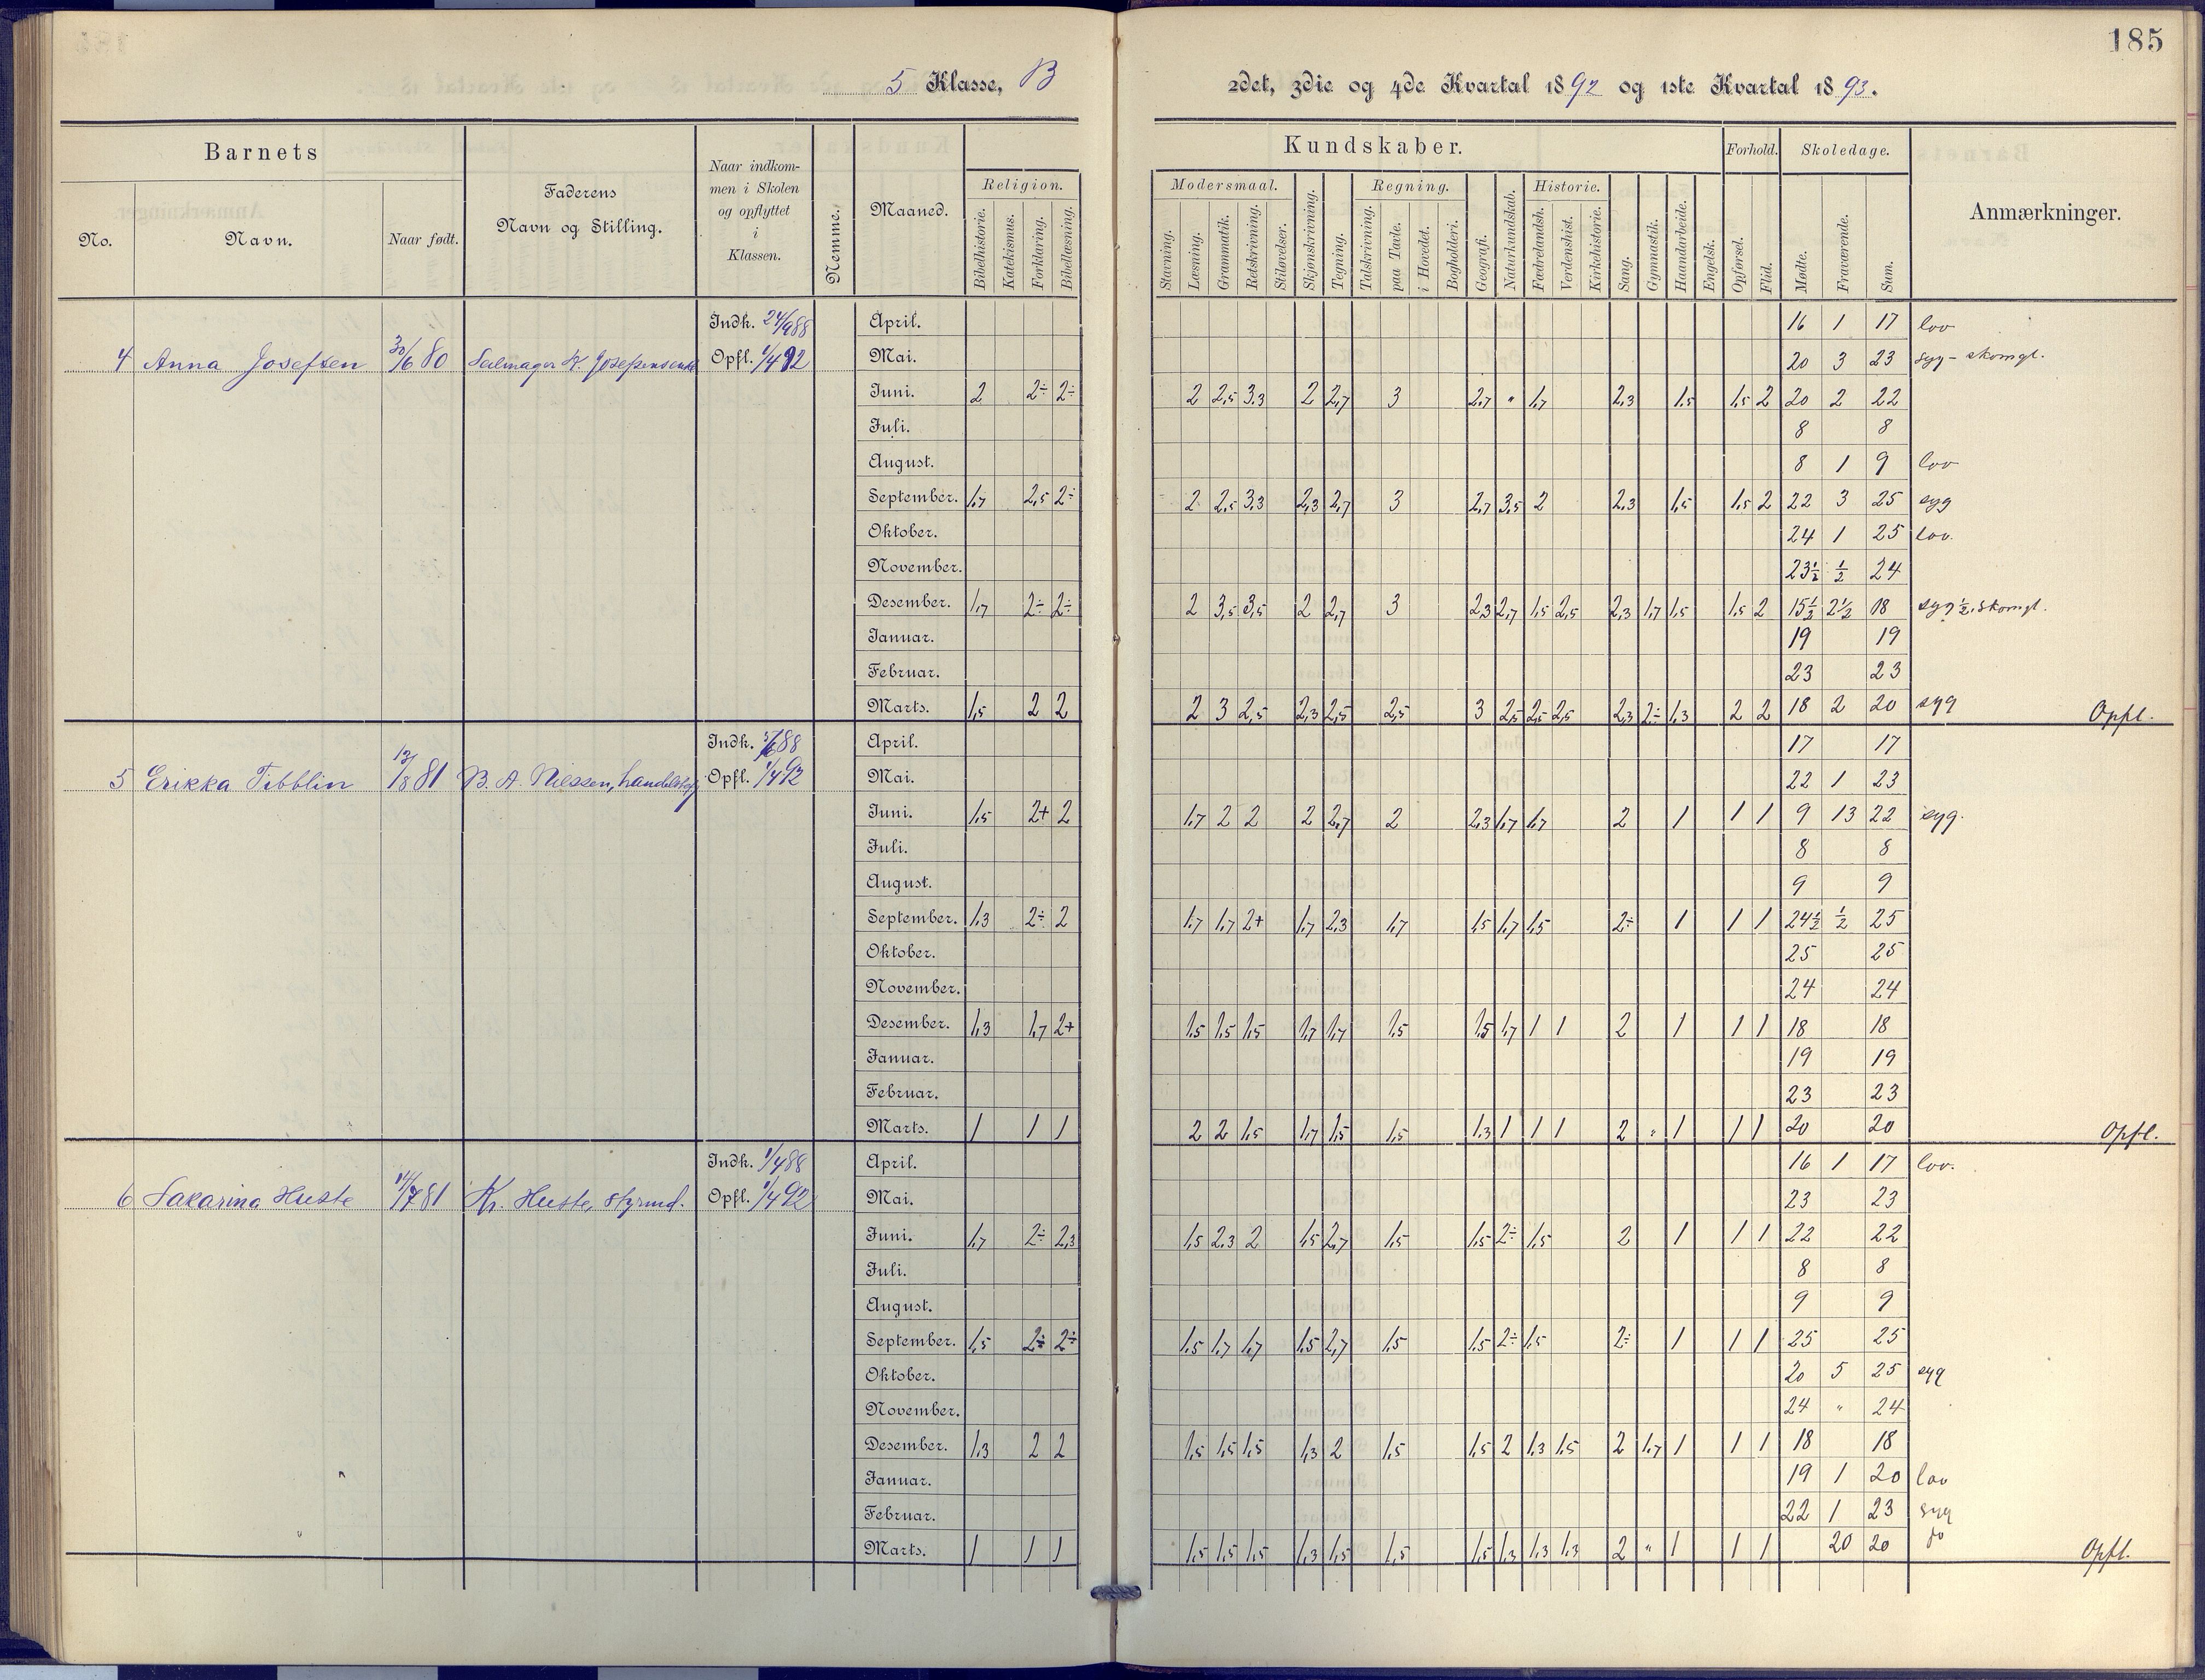 185
5 Klasse, B
2det, 3die og 4de Kvartal 1892 og 1ste Kvartal 1893.
Barnets
No.
Navn.
Naar født.
Faderens
Navn og Stilling.
Naar indkom-
men i Skolen
og opflyttet
i
Klassen.
Nemme.
Maaned.
Religion.
Bibelhistorie.
Katekismus.
Forklaring.
Bibellæsning.
Kundskaber.
Modersmaal.
Stavning.
Læsning.
Grammatik.
Retskrivning.
Stiløvelser.
Skjønskrivning.
Tegning.
Regning.
Talskrivning.
paa Tavle.
i Hovedet.
Bogholderi.
Geografi.
Naturkundskab.
Historie.
Fædrelandsh.
Verdenshist.
Kirkehistorie.
Sang.
Gymnastik.
Haandarbeide.
Engelsk.
Forhold.
Opførsel.
Flid.
Skoledage.
Mødte.
Fraværende.
Sum.
Anmærkninger.
4 Anna Josefsen 30/6 80
Indk. 24/9 88
Opfl. 1/4 92
April. 16 1 17 lov
Mai. 20 3 23 syg - skomgl.
Juni. 2 2÷ 2÷ 2 2,5 3,3 2 2,7 3 2,7 " 1,7 2,3 1,5 1,5 2 20 2 22
Juli. 8 8
August. 8 1 9 lov
September. 1,7 2,5 2÷ 2 2,5 3,3 2,3 2,7 3 2,7 3,5 2 2,3 1,5 1,5 2 22 3 25 syg
Oktober. 24 1 25 lov.
November. 23½ ½ 24
Desember. 1,7 2÷ 2÷ 2 3,5 3,5 2 2,7 3 2,3 2,7 1,5 2,5 2,3 1,7 1,5 1,5 2 15½ 2½ 18 syg ½, skomgl.
Januar. 19 19
Februar. 23 23
Marts. 1,5 2 2 2 3 2,5 2,3 2,5 2,5 3 2,5 2,5 2,5 2,3 2÷ 1,3 2 2 18 2 20 syg Opfl.
5 Erikka Tibblin 13/8 81 B. A. Nilssen,
Indk. 88
Opfl. 1/4 92
April. 17 17
Mai. 22 1 23
Juni. 1,5 2+ 2 1,7 2 2 2 2,7 2 2,3 1,7 1,7 2 1 1 1 9 13 22 syg.
Juli. 8 8
August. 9 9
September. 1,3 2÷ 2 1,7 1,7 2+ 1,7 2,3 1,7 1,5 1,7 1,5 2÷ 1 1 1 24½ ½ 25
Oktober. 25 25
November. 24 24
Desember. 1,3 1,7 2+ 1,5 1,5 1,5 1,7 1,7 1,5 1,5 1,7 1 1 2 1 1 1 18 18
Januar. 19 19
Februar. 23 23
Marts. 1 1 1 2 2 1,5 1,7 1,5 1,5 1,3 1 1 1 2 " 1 1 1 20 20 Opfl.
6 Sakarina Huste 14/7 81 Kr. Huste, styrmd.
Indk. 1/4 88
Opfl. 1/4 92
April. 16 1 17 lov.
Mai. 23 23
Juni. 1,7 2÷ 2,3 1,5 2,3 2 1,5 2,7 1,5 1,5 2÷ 1,5 2 1 1 1 22 22
Juli. 8 8
August. 9 9
September. 1,5 2÷ 2÷ 1,5 1,7 1,7 1,5 2,7 1,5 1,5 2÷ 1,5 2÷ 1 1 1 25 25
Oktober. 20 5 25 syg
November. 24 " 24
Desember. 1,3 2 2 1,5 1,5 1,5 1,3 2 1,5 1,5 2 1,3 1,5 2 1,7 1 1 1 18 18
Januar. 19 1 20 lov
Februar. 22 1 23 syg
Marts. 1 1 1 1,5 1,5 1,5 1,3 1,5 1,5 1,5 1,3 1,3 1,3 2 " 1 1 1 20 20 do Opfl.